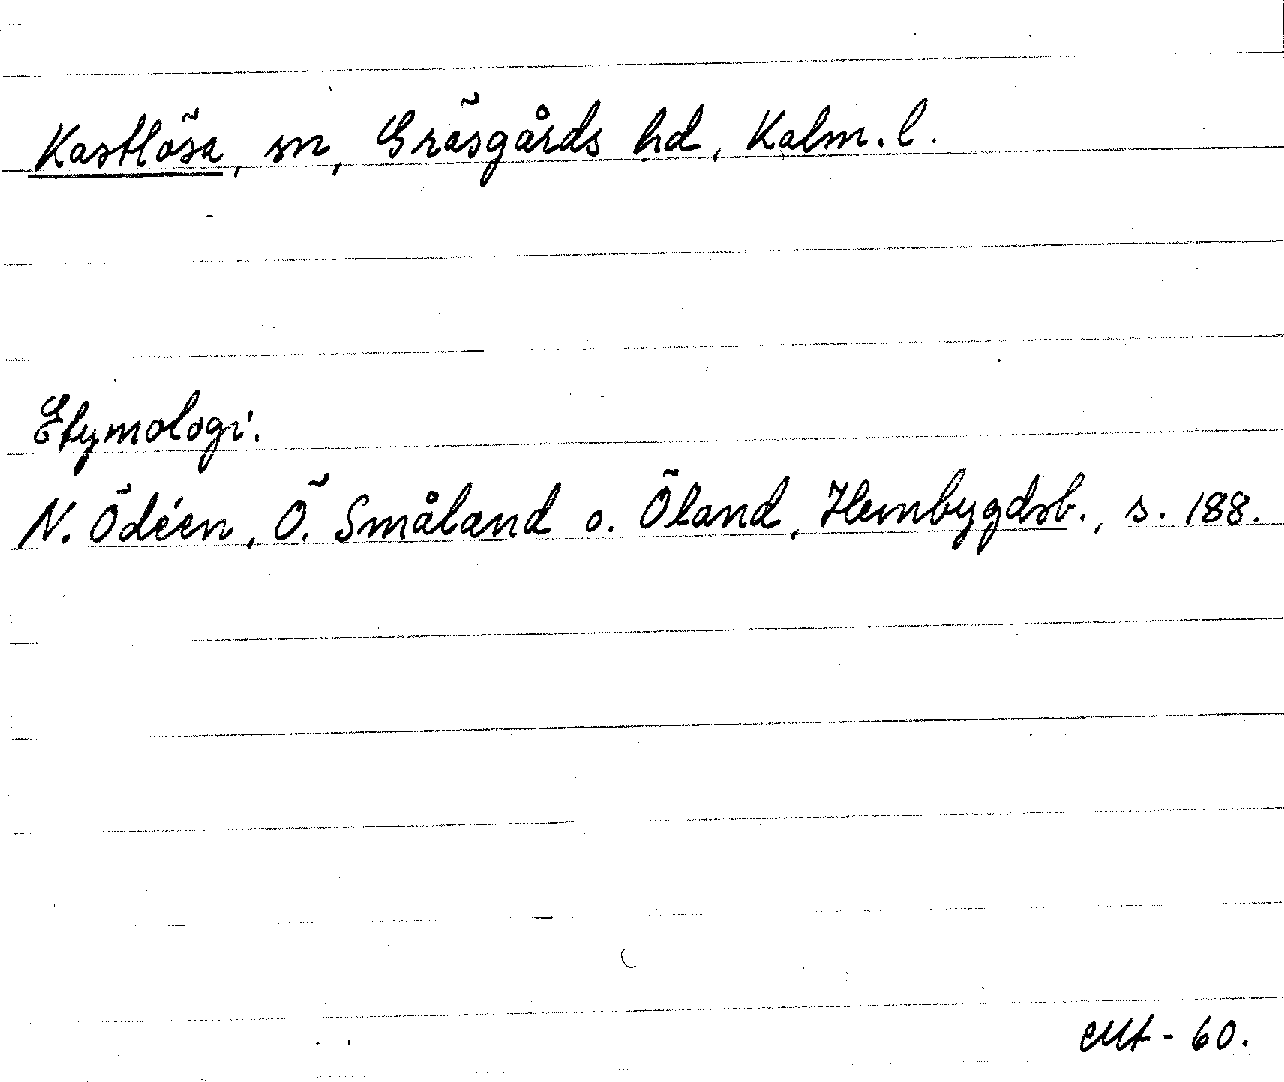 Kastlösa, sn, Gräsgårds hd, Kalm. l.
Etymologi.
N. Ödéen, Ö. Småland o. Öland, Hembygdsb., s. 188.
-60.